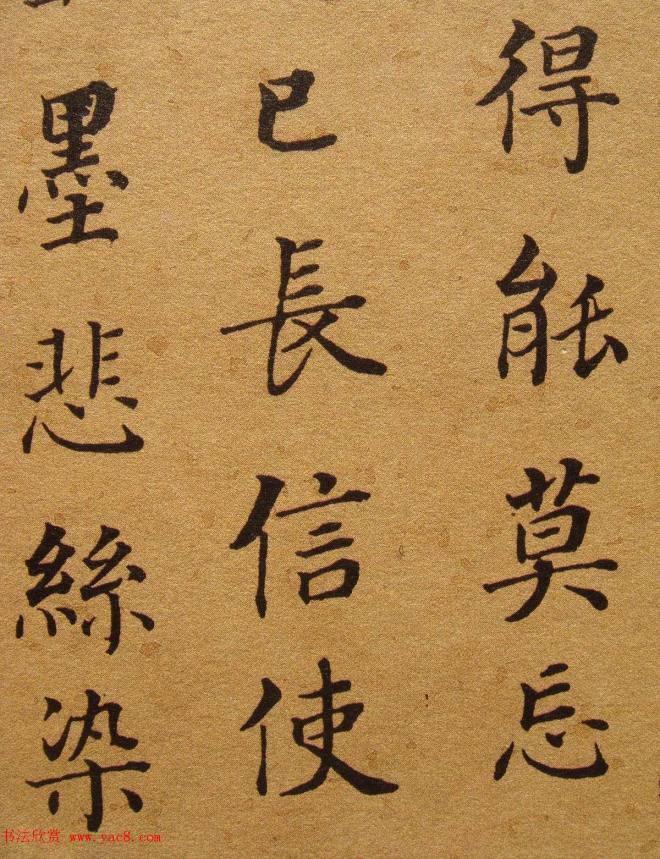 得能莫忘
已長信使
墨悲絲染
书法欣赏 www.yac8.com